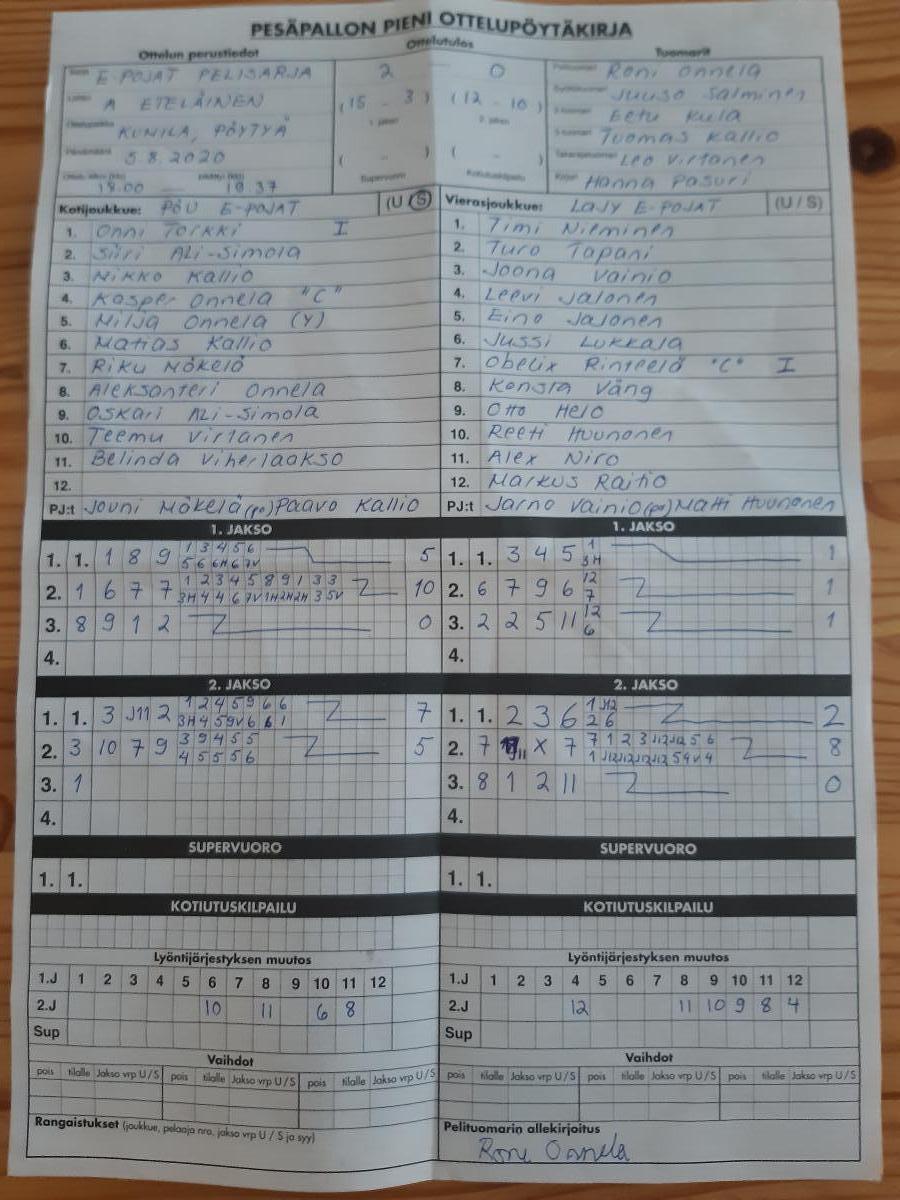 PESÄPALLON PIENI OTTELUPÖYTÄKIRJA
Ottelun perustiedot Ottelutulos Tuomarit
E-POJAT PELISARJA 2 0 Roni Onnela
A ETELÄINEN (15 - 3) (12 - 10) Juuso Salminen
1. jakso 2. jakso Eetu Kula
KUNILA, PÖYTYÄ Tuomas Kallio
5.8.2020 ( - ) ( - ) Leo Virtanen
18.00 19.37 Supervuoro Kotiutuskilpailu Hanna Pasuri
Kotijoukkue: PÖU E-POJAT (U/S) Vierasjoukkue: LAJY E-POJAT (U/S)
1. Onni Torkki I 1. Timi Nieminen
2. Siiri Ali-Simola 2. Turo Tapani
3. Nikko Kallio 3. Joona Vainio
4. Kasper Onnela "C" 4. Leevi Jalonen
5. Milja Onnela (Y) 5. Eino Jalonen
6. Matias Kallio 6. Jussi Lukkala
7. Riku Mäkelä 7. Obelix Rinteelä "C" I
8. Aleksanteri Onnela 8. Konsta Väng
9. Oskari Ali-Simola 9. Otto Helo
10. Teemu Virtanen 10. Reeti Huunonen
11. Belinda Viherlaakso 11. Alex Niro
12. 12. Markus Raitio
PJ:t Jouni Mäkelä (po) Paavo Kallio PJ:t Jarno Vainio (po) Matti Huunonen
1. JAKSO 1. JAKSO
1. 1. 1 8 9 1 3 4 5 6 5 1. 1. 3 4 5 1 1
5 6 6H 6 7V 3H
2. 1 6 7 7 1 2 3 4 5 8 9 1 3 3 10 2. 6 7 9 6 12 1
3H 4 4 6 7V 1H 2H 2H 3 5V 7
3. 8 9 1 2 0 3. 2 2 5 11 12 1
6
4. 4.
2. JAKSO 2. JAKSO
1. 1. 3 J11 2 1 2 4 5 9 6 6 7 1. 1. 2 3 6 1 J12 2
3H 4 5 9V 6 6 1 2 6
2. 3 10 7 9 3 9 4 5 5 5 2. 7 11 X 7 7 1 2 3 J12 J12 5 6 8
4 5 5 5 6 1 J12 J12 J12 J12 5 4V 4
3. 1 3. 8 1 2 11 0
4. 4.
SUPERVUORO SUPERVUORO
1. 1. 1. 1.
KOTIUTUSKILPAILU KOTIUTUSKILPAILU
Lyöntijärjestyksen muutos Lyöntijärjestyksen muutos
1.J 1 2 3 4 5 6 7 8 9 10 11 12 1.J 1 2 3 4 5 6 7 8 9 10 11 12
2.J 10 11 6 8 2.J 12 11 10 9 8 4
Sup Sup
Vaihdot Vaihdot
pois tilalle Jakso vrp U/S pois tilalle Jakso vrp U/S pois tilalle Jakso vrp U/S pois tilalle Jakso vrp U/S pois tilalle Jakso vrp U/S pois tilalle Jakso vrp U/S
Rangaistukset (joukkue, pelaaja nro, jakso vrp U / S ja syy) Pelituomarin allekirjoitus
Roni Onnela